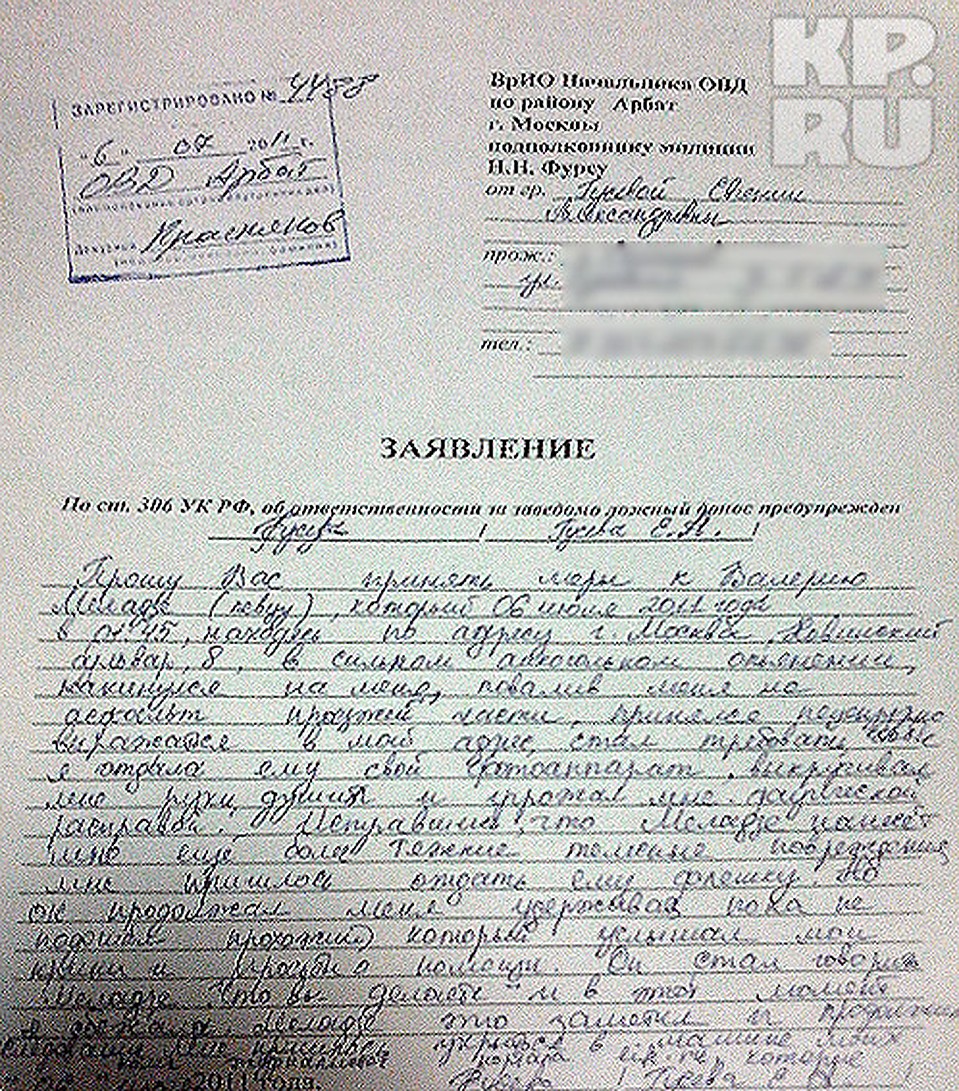 KP.
RU
ЗАРЕГИСТРИРОВАНО № 4458
"6" 07 2011 г.
ОВД Арбат
Краснянов
ВрИО Начальника ОВД
по району Арбат
г. Москвы
подполковнику милиции
Н.Н. Фурсу
от гр. Гусевой Евгении
Александровны
прож.:
тел.:
ЗАЯВЛЕНИЕ
По ст. 306 УК РФ, об ответственности за заведомо ложный донос предупрежден
Гусева / Гусева Е.А. /
Прошу Вас принять меры к Валерию
Меладзе (певцу), который 06 июля 2011 года
в 01:45, находясь по адресу г. Москва, Новинский
бульвар, 8, в сильном алкогольном опьянении,
накинулся на меня, повалив меня на
асфальт проезжей части, принялся нецензурно
выражаться в мой адрес, стал требовать чтобы
я отдала ему свой фотоаппарат, выкручивал
мне руки, душил и угрожал мне физической
расправой. Испугавшись, что Меладзе нанесет
мне ещё более тяжкие телесные повреждения
мне пришлось отдать ему флешку. Но
он продолжал меня удерживать пока не
подошел прохожий, который услышал мои
крики и просьбы о помощи. Он стал говорить
Меладзе "что вы делаете" и в этот момент
я сбежала. Меладзе это заметил и
мне пришлось укрыться в машине моих
которые
2011 года. Гусева / Гусева Е.А.